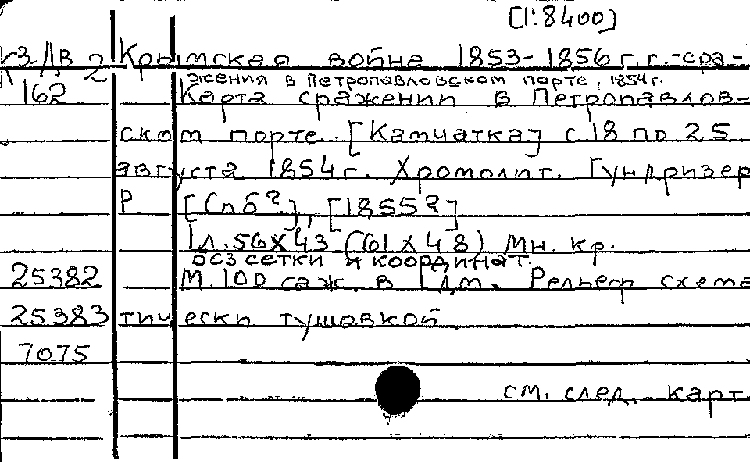 [1:8400]
К3/Дв 2 Крымская война 1853-1856 г.г. - сра-
жения в Петропавловском порте, 1854г.
162 Карта сражении в Петропавлов-
ском порте [Камчатка] с 18 по 25
августа 1854г. Хромолит. Гундризер
Р. [Спб?], [1855?]
1л. 56х43 (61х48) мн. кр.
без сетки и координат.
25382 М. 100 саж. в 1дм. Рельеф схема
25383 тически тушовкой
7075
см. след. карт